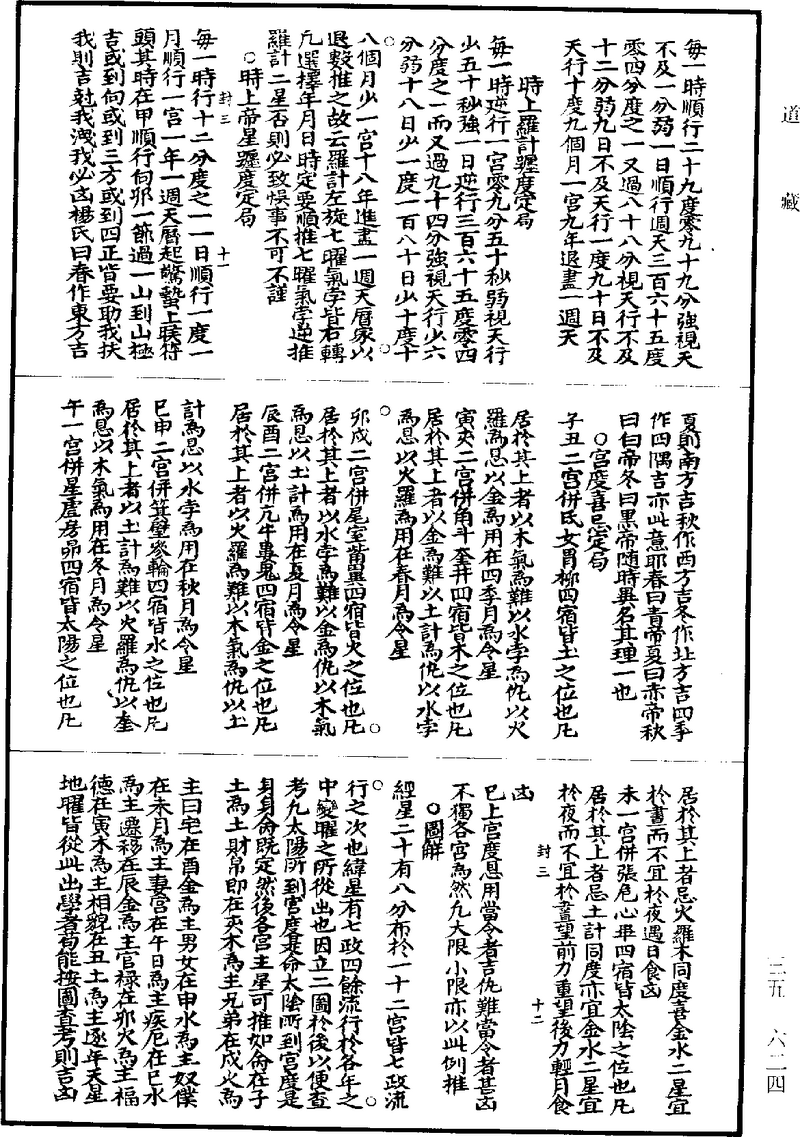 道藏
每一時順行二十九度零九十九分強視天
不及一分弱一日順行週天三百六十五度
零四分度之一又過八十八分視天行不及
十二分弱九日不及天行一度九十日不及
天行十度九個月一宮九年退盡一週天
時上羅計躔度定局
每一時逆行一宮零九分五十秒弱視天行
少五十秒強一日逆行三百六十五度零四
分度之一而又過九十四分強視天行少六
分弱十八日少一度一百八十日少十度十
八個月少一宮十八年進盡一週天曆家以
退數推之故云羅計左旋七曜氣孛皆右轉
凡選擇年月日時定要順推七曜氣孛逆推
羅計二星否則必致悞事不可不謹
○時上帝星躔度定局
封三 十一
每一時行十二分度之一一日順行一度一
月順行一宮一年一週天曆起驚蟄上聯符
頭其時在甲順行向卯一節過一山到山極
吉或到向或到三方或到四正皆要助我扶
我則吉尅我洩我必凶楊氏曰春作東方吉
夏則南方吉秋作西方吉冬作北方吉四季
作四隅吉亦此意耶春曰青帝夏曰赤帝秋
曰白帝冬曰黑帝隨時異名其理一也
○宮度喜忌定局
子丑二宮併氐女胃柳四宿皆土之位也凡
居於其上者以木氣為難以水孛為仇以火
羅為恩以金為用在四季月為令星
寅亥二宮併角斗奎井四宿皆木之位也凡
居於其上者以金為難以土計為仇以水孛
為恩以火羅為用在春月為令星
卯戌二宮併尾室觜翼四宿皆火之位也凡
居於其上者以水孛為難以金為仇以木氣
為恩以土計為用在夏月為令星
辰酉二宮併亢牛婁鬼四宿皆金之位也凡
居於其上者以火羅為難以木氣為仇以土
計為恩以水孛為用在秋月為令星
巳申二宮併箕壁參軫四宿皆水之位也凡
居於其上者以土計為難以火羅為仇以金
為恩以木氣為用在冬月為令星
午一宮併星虛房昴四宿皆太陽之位也凡
居於其上者忌火羅木同度喜金水二星宜
於晝而不宜於夜遇日食凶
未一宮併張危心畢四宿皆太陰之位也凡
居於其上者忌土計同度亦宜金水二星宜
於夜而不宜於晝望前力重望後力輕月食
封三 十二
凶
巳上宮度恩用當令者吉仇難當令者甚凶
不獨各宮為然凡大限小限亦以此例推
○圖解
經星二十有八分布於一十二宮皆七政流
行之次也緯星有七政四餘流行於各年之
中變曜之所從出也因立二圖於後以便查
考凡太陽所到宮度是命太陰所到宮度是
身身命既定然後各宮主星可推如命在子
土為主財帛即在亥木為主兄弟在戌火為
主田宅在酉金為主男女在申水為主奴僕
在未月為主妻宮在午日為主疾厄在巳水
為主遷移在辰金為主官祿在卯火為主福
德在寅木為主相貌在丑土為主逐年天星
地曜皆從此出學者苟能按圖查考則吉凶
三五 六二四